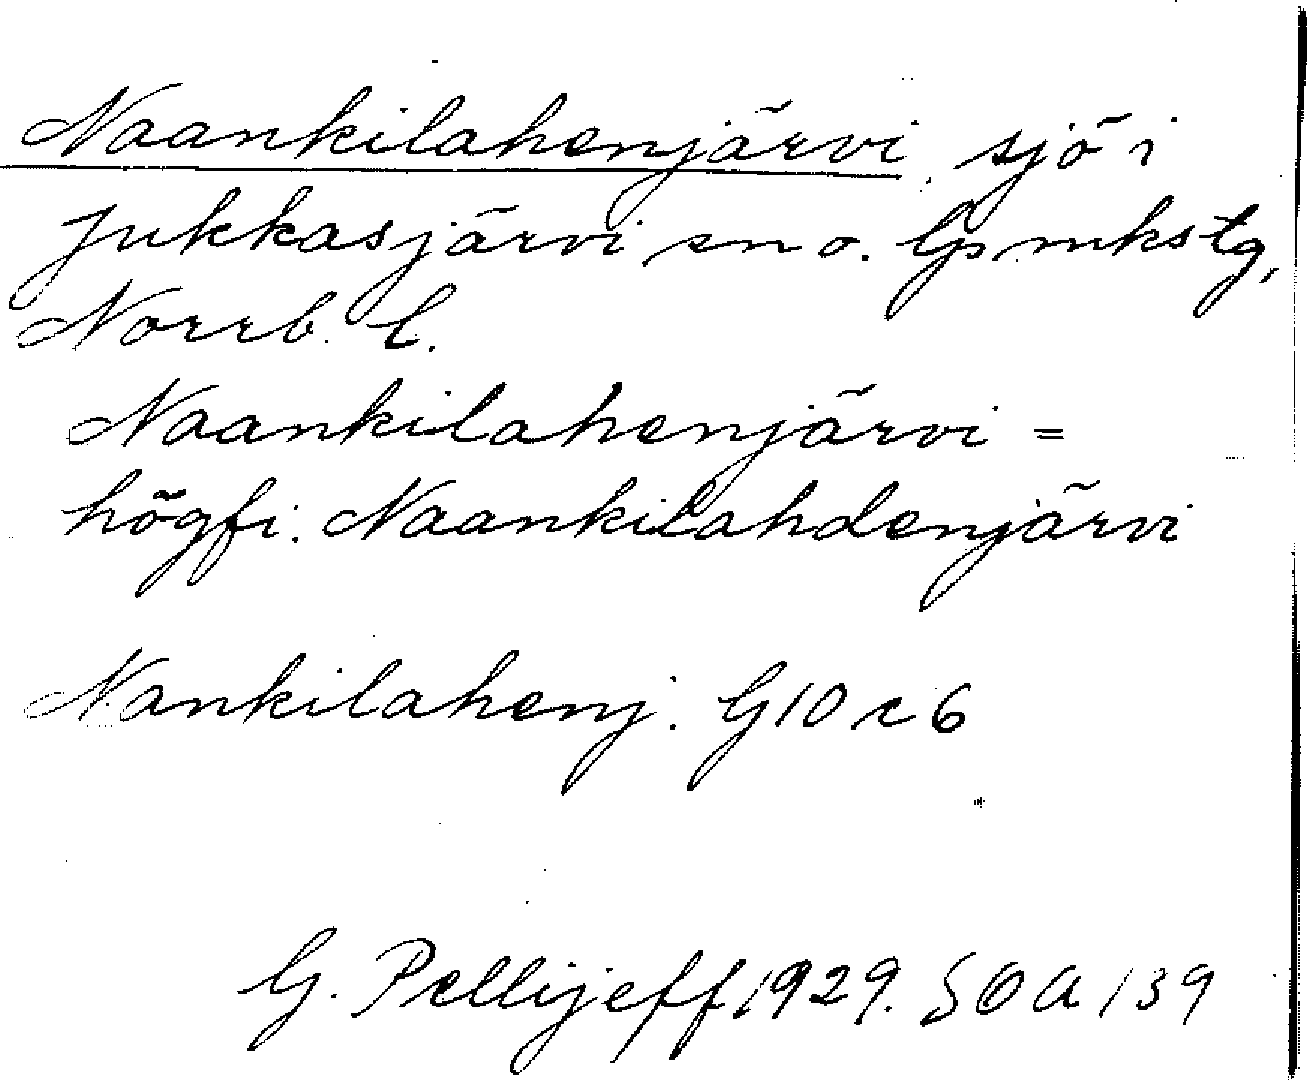 Naankilahenjärvi, sjö i
Jukkasjärvi sn o. lpsmkstg,
Norrb. l.
Naankilahenjärvi =
högfi. Naankilahdenjärvi
Nankilahenj. G10 c 6
G. Pellijeff 1929. SOA 139